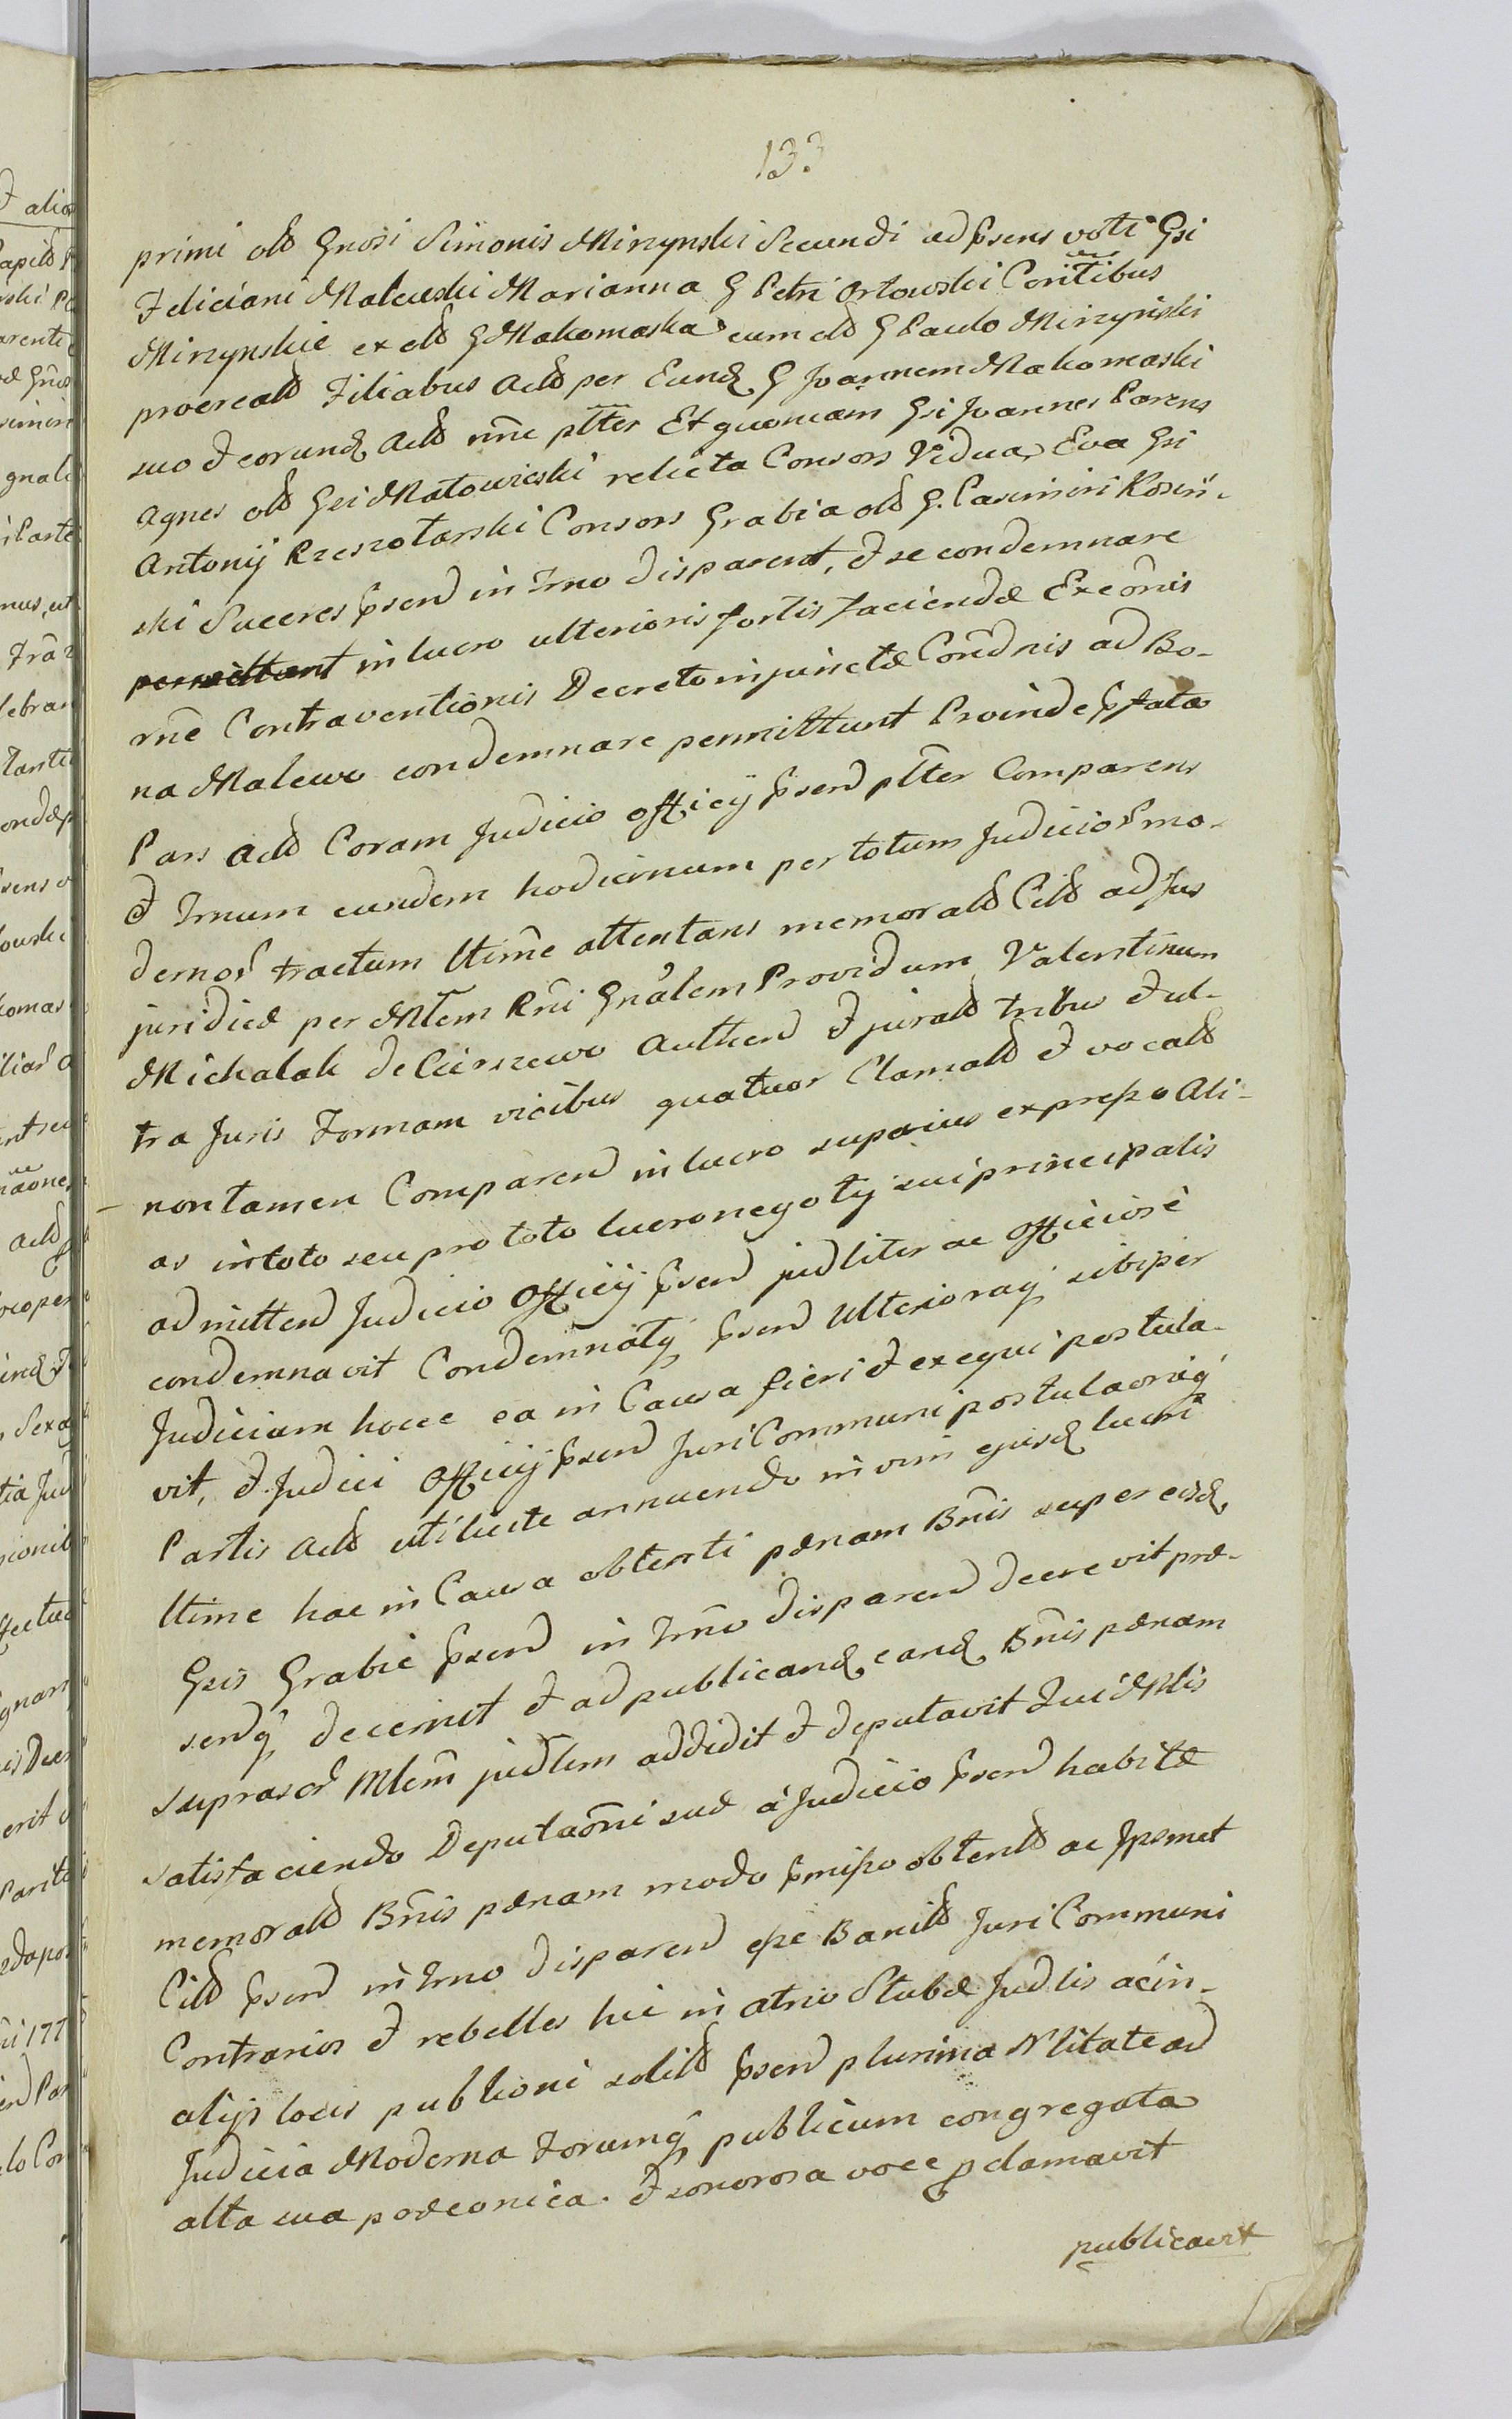 133
primi olð Gnosi Simonis Mirzynski Secundi ad p̄sens voti Gsi
Feliciani Malewski Marianna G Petri Orłowski Coñtibus
Mirzynskie ex olð G Makomaska cum olð G Paulo Mirzynski
procreatð Filiabus Actð per Eund G Joannem Makomaski
suo et eorund Actð nñe plt̄er Et quoniam Gsi Joannes Parens
Agnes olð Gsi Matowieski relicta Consors Vidua, Eva Gsi
Antonij Rzeszotarski Consors Grabia olð G. Casimiri Kosiń-
ski Succres p̄send in Trno disparent, et se condemnare
permittunt in lucro ulterioris fortis faciendæ Execōnis
rñe Contraventionis Decreto injunctæ Condn̄is ad Bo-
na Malewo condemnare permittunt Proinde p̄fata
Pars Actð Coram Judicio officij p̄send plt̄er Comparens
et Trnum eundem hodiernum per totum Judicior mo-
dernor tractum ltime attentans memoratð Citð ad Jus
juridice per Mlem Rni Gnalem Providum Valentinum
Michalak de Cierszewo Authen et juratð tribus et ul-
tra Juris Formam vicibus quatuor Clamatð et vocatð
non tamen Comparen in lucro superius expresso Ali-
as in toto seu pro toto lucro negotij sui principalis
admitten Judicio Officij p̄send judliter ac Officiosè
condemnavit Condemnatq p̄send Ulterioraq sibi per
Judicium hocce ea in Causa fieri et exequi postula-
vit, et Judici Officij p̄send Juri Communi postulaōniq
Partis Actð uti licite annuendo in vim ejusd lucri
ltime hac in Causa obtenti pænam Bnis super eisd
Gsis Grabie p̄send in Trno disparen decrevit præ-
senq decernit et ad publicand eand Bnis pænam
suprascr Mlem judlem addidit et deputavit Qui Mlis
satisfaciendo Deputaōni suæ à Judicio p̄send habitæ
memoratð Bnis pænam modo p̄misso obtentð ac Ipsmet
Citð p̄send in Trno disparen esse Banitð Juri Communi
Contrarios et rebelles hic in atrio Stubæ Judlis ac in
alijs locis publicōni solitð p̄send plurima Nlitate ad
Judicia Moderna Forumq publicum congregata
alta sua præconica. et sonorosa voce pclamavit
publicavit